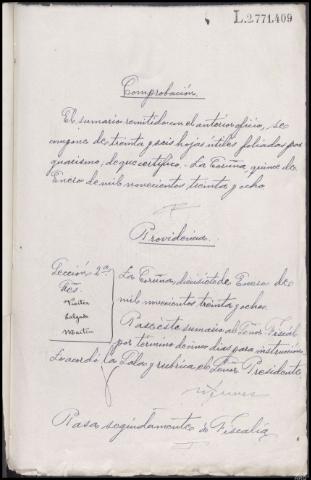 L.2771.409
Comprobación.
El sumario remitido con el anterior oficio, se
compone de treinta y seis hojas útiles foliadas por
guarismo; de que certifico.- La Coruña, quince de
Enero de mil novecientos treinta y ocho
Providencia.
Sección 2ª
Sres.
La Coruña, diecisiete de Enero de
mil novecientos treinta y ocho.
Salgado
Martín
Pase este sumario al Señor Fiscal
por término de cinco días para instrucción
Lo acordó la Sala y rubrica el Señor Presidente
Pasa seguidamente a Fiscalía